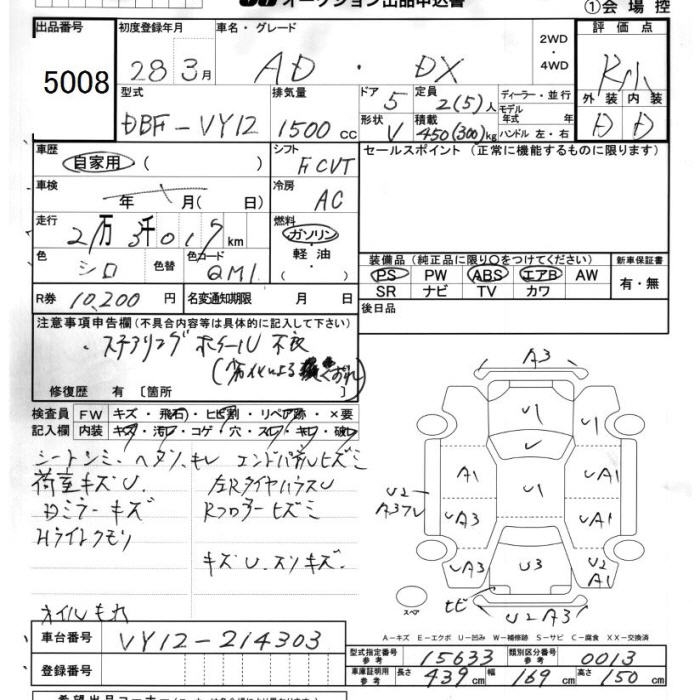 オークション出品申込書
①会場控
出品番号 初度登録年月 車名・グレード 2WD 評価点
5008 28 3月 AD・DX ・4WD R小
型式 排気量 ドア 5 定員 2(5)人 ディーラー・並行 外装 内装
DBF-VY12 1500cc 形状 V 積載 450(300)kg モデル年式 年式 ハンドル 左・右 D D
車歴 自家用 ( ) シフト FCVT セールスポイント (正常に機能するものに限ります)
車検 年 月(日) 冷房 AC
走行 2万3千019km 燃料 ガソリン・軽油・( )
色 シロ 色替 色コード QM1
装備品 (純正品に限り○をつけてください) 新車保証書
PS PW ABS エアB AW 有・無
SR ナビ TV カワ
R券 10,200円 名変通知期限 月 日 後日品
注意事項申告欄 (不具合内容等は具体的に記入して下さい)
・ステアリングホイール不良
修復歴 有〔箇所 〕
検査員 FW キズ・飛石・ヒビ割・リペア跡・×要
記入欄 内装 キズ・汚レ・コゲ・穴・スレ・キレ・破レ
シートシミ・ヘタリ、キレ エンドパネルヒズミ
荷室キズU. 左RタイヤハウスU
Dミラーキズ Rフロアーヒズミ
Hライトクモリ
キズU.スリキズ.
オイルモレ
A3
U1
U
A1 U1 UA1
U2 A3フレ
UA3 UA3
UA3 U3 U2 A1
ヒビ U2A3
スペア
A-キズ E-エクボ U-凹み W-補修跡 S-サビ C-腐食 XX-交換済
車台番号 VY12-214303
型式指定番号 参考 15633 類別区分番号 参考 0013
登録番号 車庫証明用 参考 長さ 439cm 幅 169cm 高さ 150cm
希望出品コーナー